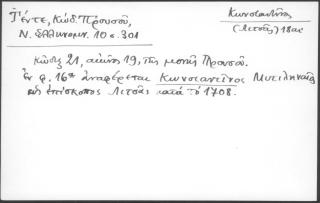 Γέντε, Κώδ. Προυσοῦ,
Ν. Ἑλληνομν. 10 σ. 301
Κωνσταντῖνος
(Λιτσᾶς) 18ος
Κῶδιξ 21, αἰῶνος 19, τῆς μονῆς Προυσοῦ.
Ἐν φ. 16α ἀναφέρεται Κωνσταντῖνος Μυτιληναῖος
ὡς ἐπίσκοπος Λιτσᾶς κατὰ τὸ 1708.